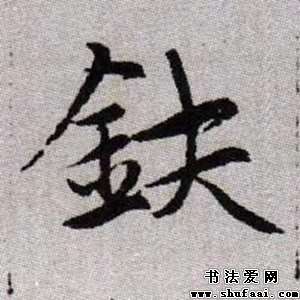 鈌
书法爱网
www.shufaai.com